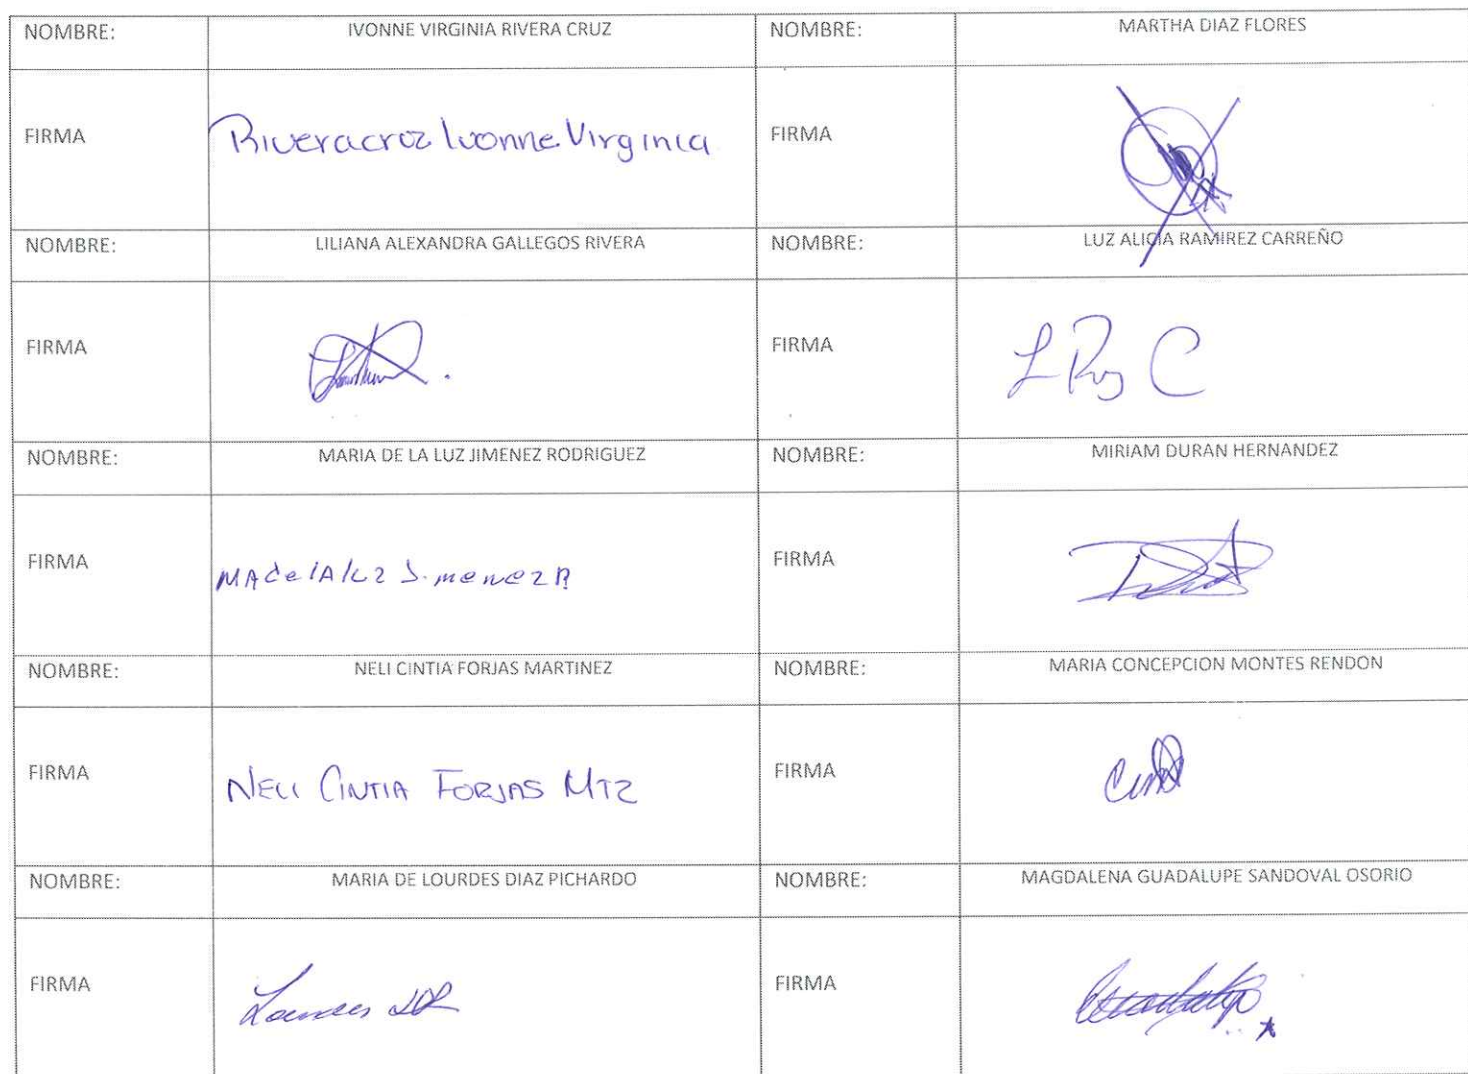 NOMBRE: IVONNE VIRGINIA RIVERA CRUZ NOMBRE: MARTHA DIAZ FLORES
FIRMA Riveracruz Ivonne Virginia FIRMA
NOMBRE: LILIANA ALEXANDRA GALLEGOS RIVERA NOMBRE: LUZ ALICIA RAMIREZ CARREÑO
FIRMA FIRMA
NOMBRE: MARIA DE LA LUZ JIMENEZ RODRIGUEZ NOMBRE: MIRIAM DURAN HERNANDEZ
FIRMA FIRMA
NOMBRE: NELI CINTIA FORJAS MARTINEZ NOMBRE: MARIA CONCEPCION MONTES RENDON
FIRMA NELI CINTIA FORJAS MTZ FIRMA
NOMBRE: MARIA DE LOURDES DIAZ PICHARDO NOMBRE: MAGDALENA GUADALUPE SANDOVAL OSORIO
FIRMA Lourdes FIRMA